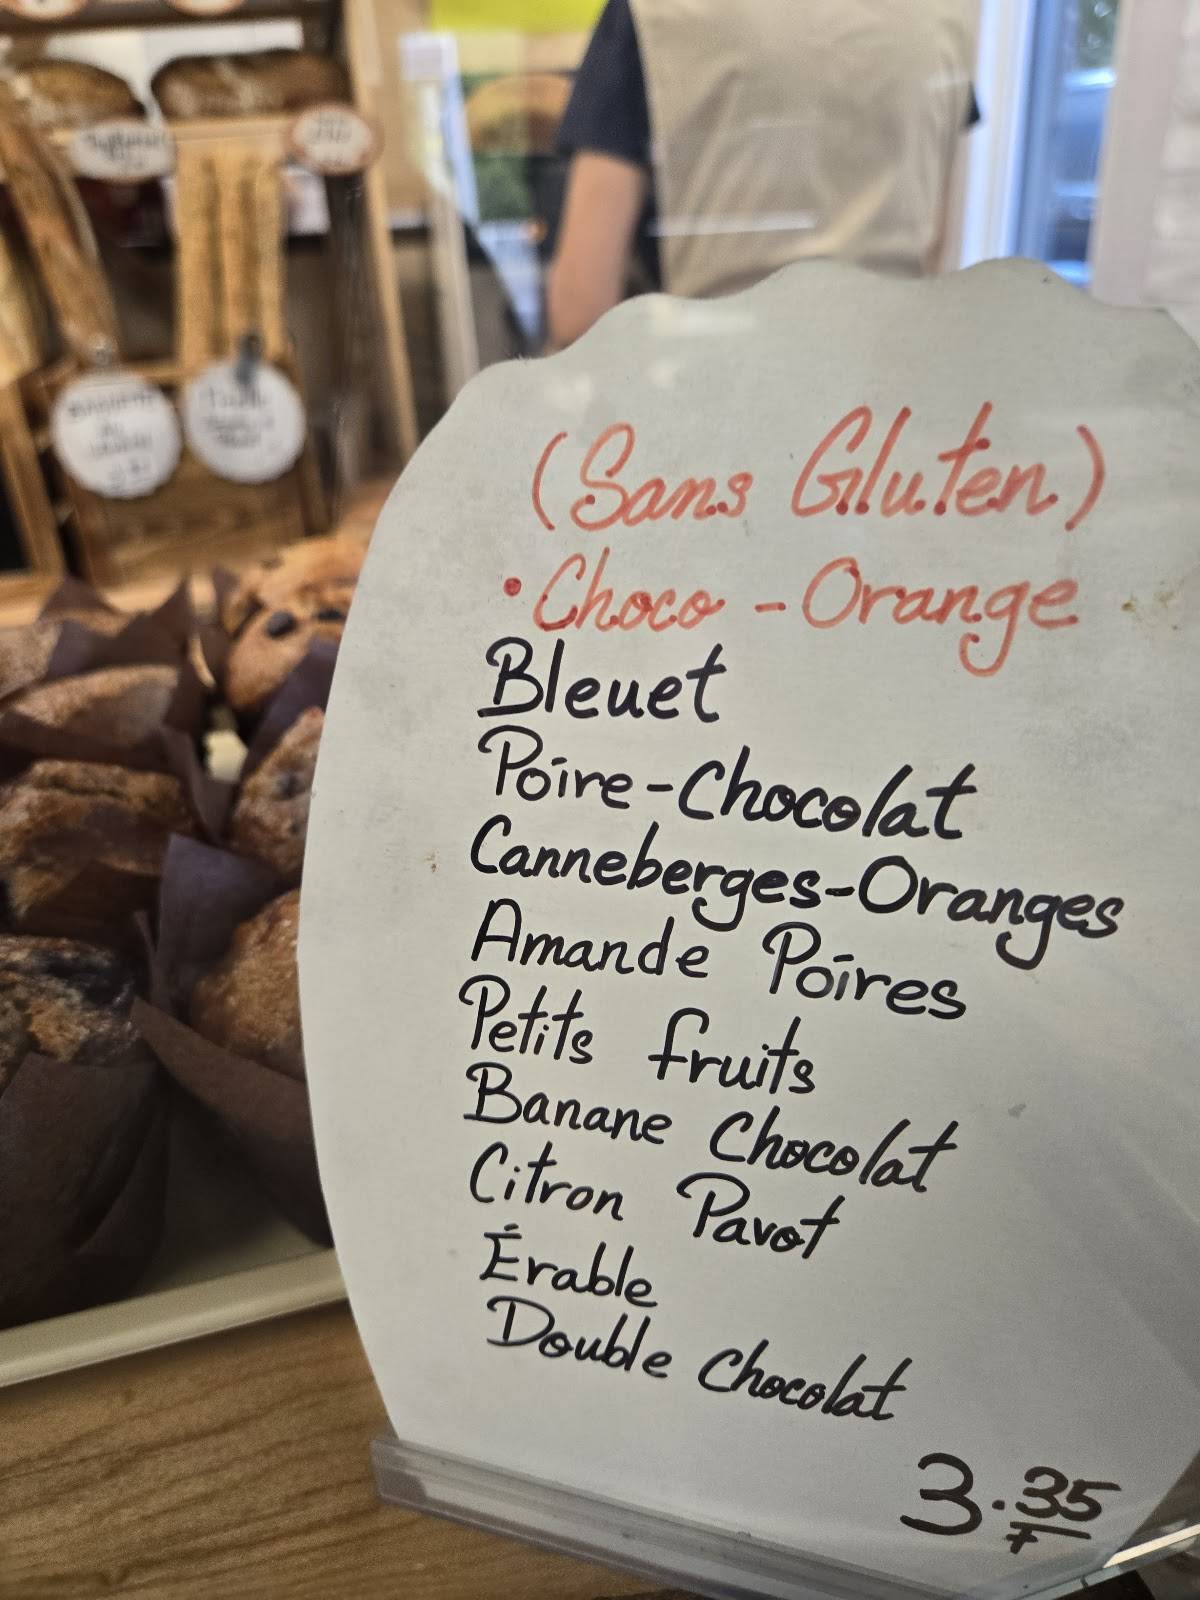 (Sans Gluten)
• Choco - Orange
Bleuet
Poire-Chocolat
Canneberges-Oranges
Amande Poires
Petits fruits
Banane Chocolat
Citron Pavot
Érable
Double Chocolat
3.35